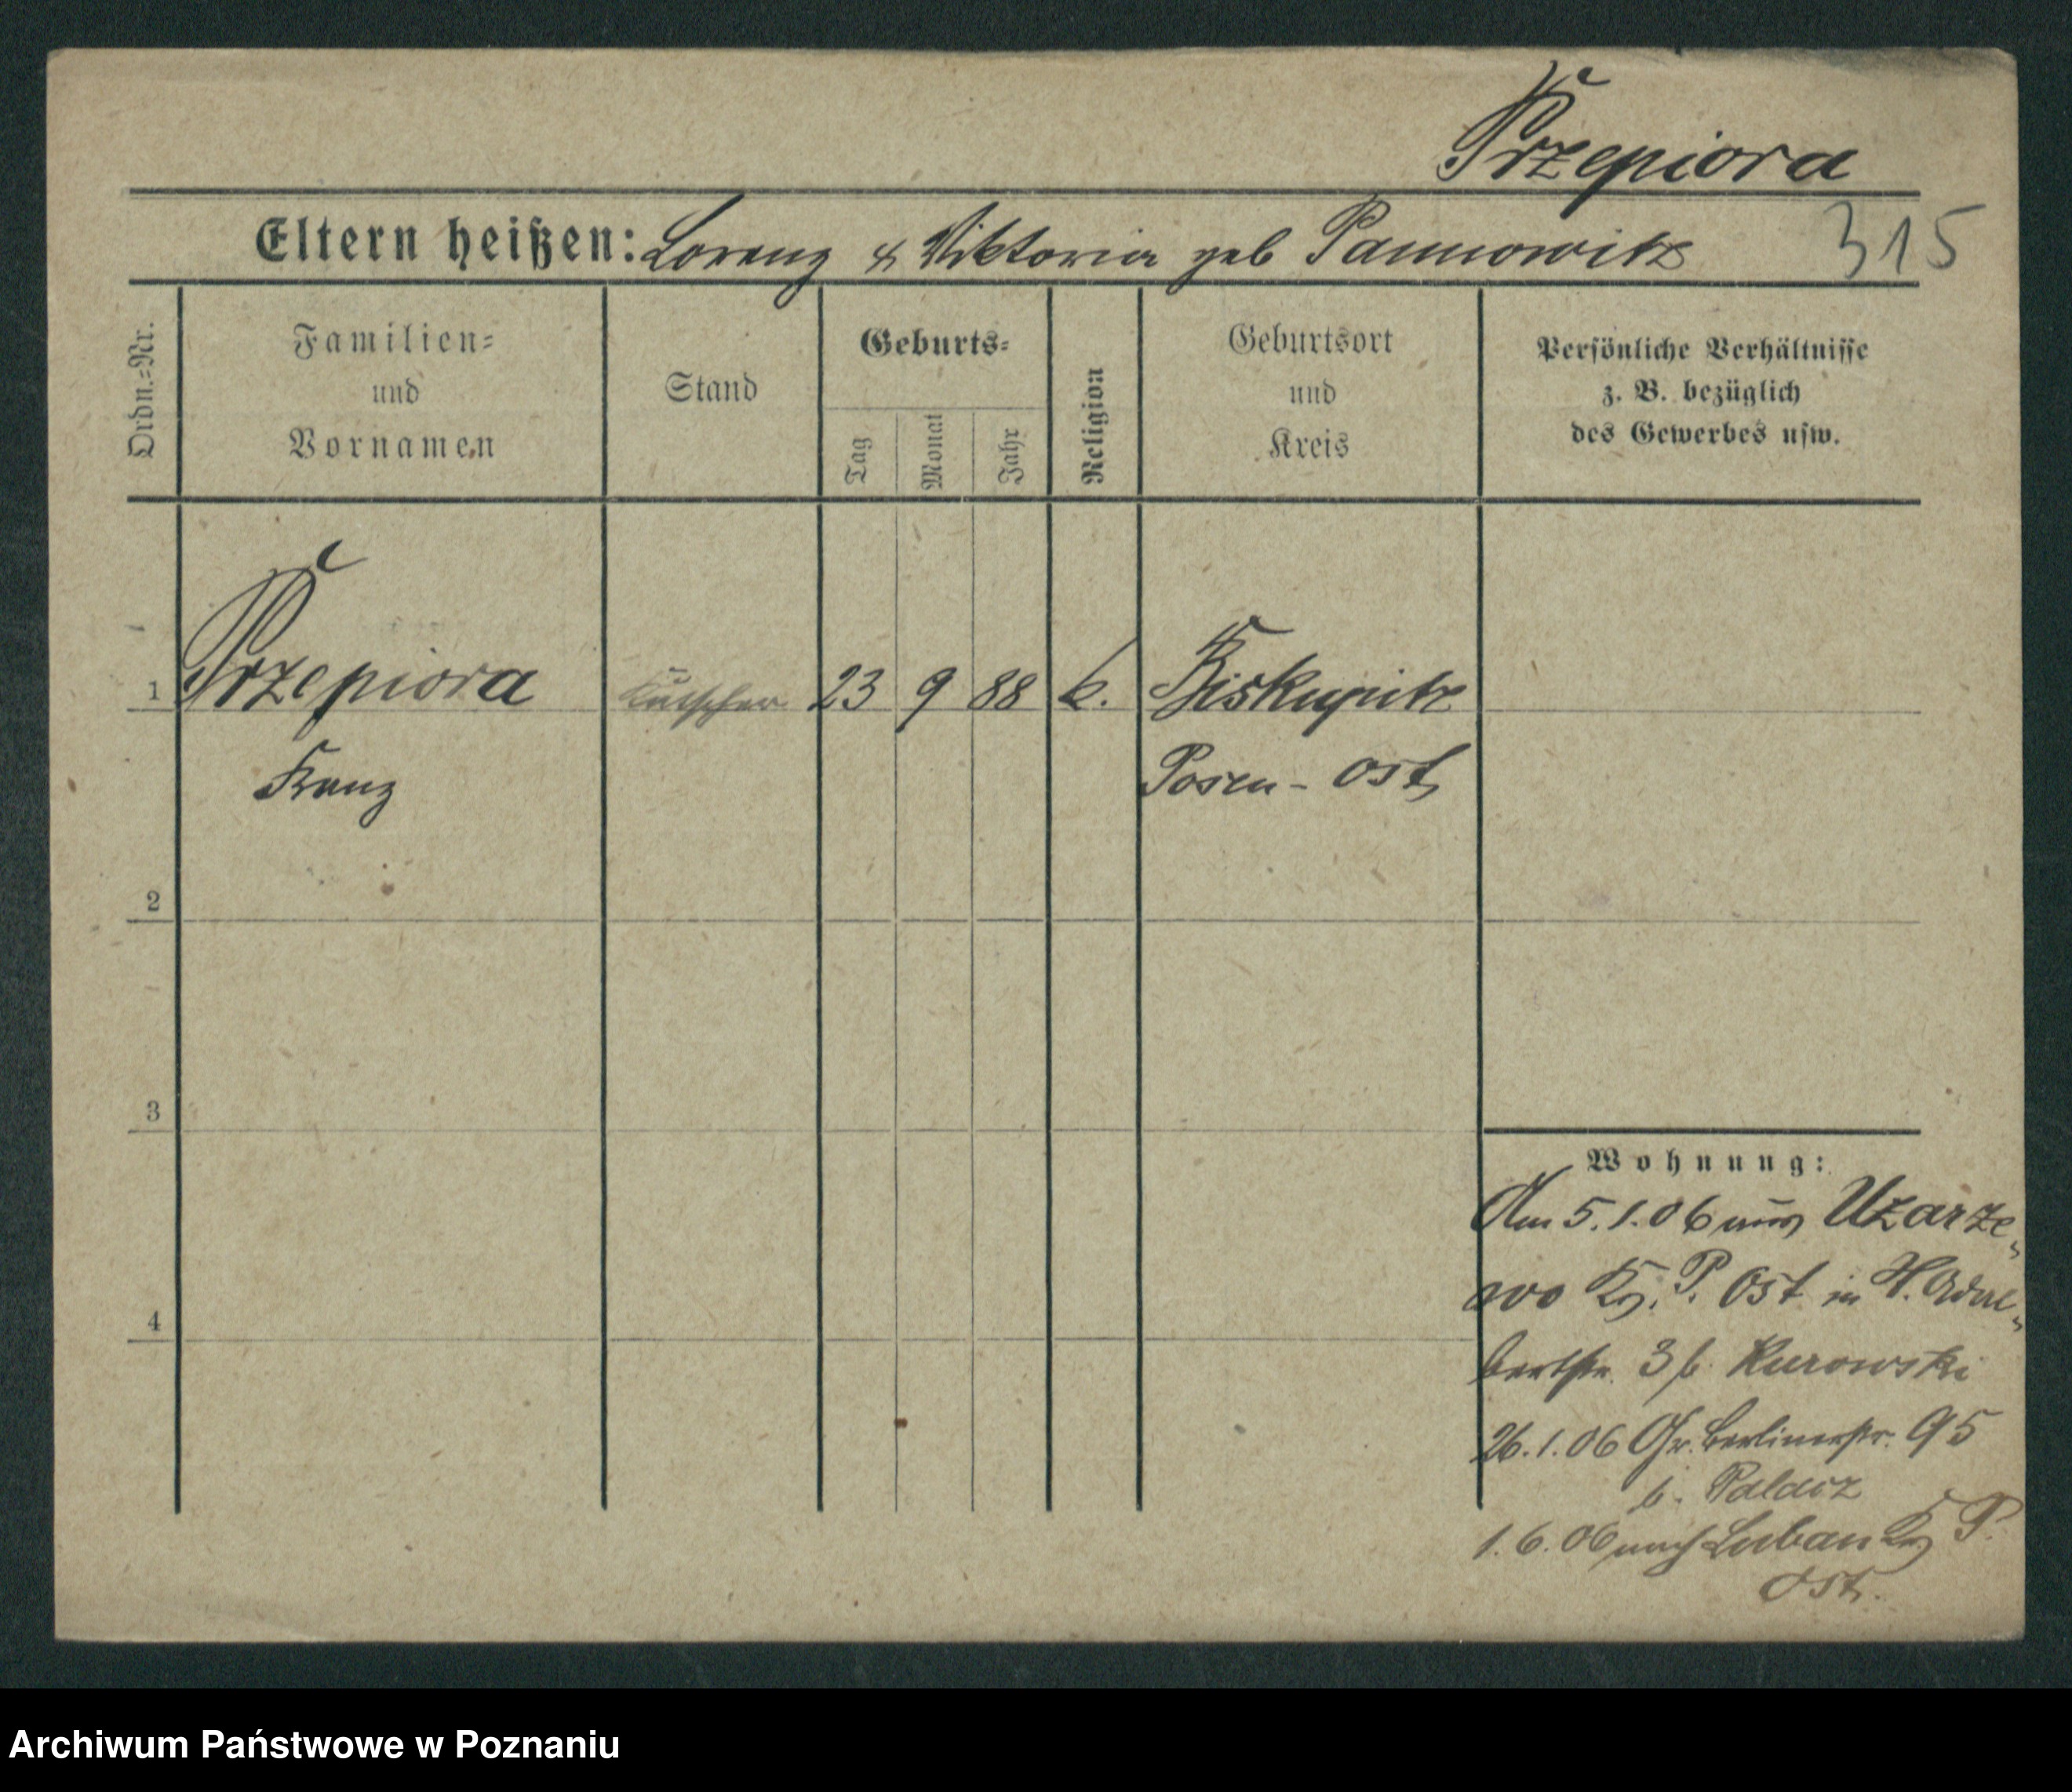 Przepiora
Eltern heißen: Lorenz & Viktoria geb Pannowitz 315
Ordn.=Nr.
Familien=
und
Vornamen
Stand
Geburts=
Tag
Monat
Jahr
Religion
Geburtsort
und
Kreis
Persönliche Verhältnisse
z. B. bezüglich
des Gewerbes usw.
1 Przepiora Kutscher 23 9 88 k. Biskupitz
Franz Posen - Ost
2
3
4
Wohnung:
Am 5.1.06 aus Uzarze„
wo Krs. P. Ost in H. Adal„
bertstr. 3 b. Kurowski
26.1.06 Gr. Berlinerstr. 95
b. Palacz
1.6.06 nach Luban Krs P.
Ost.
Archiwum Państwowe w Poznaniu